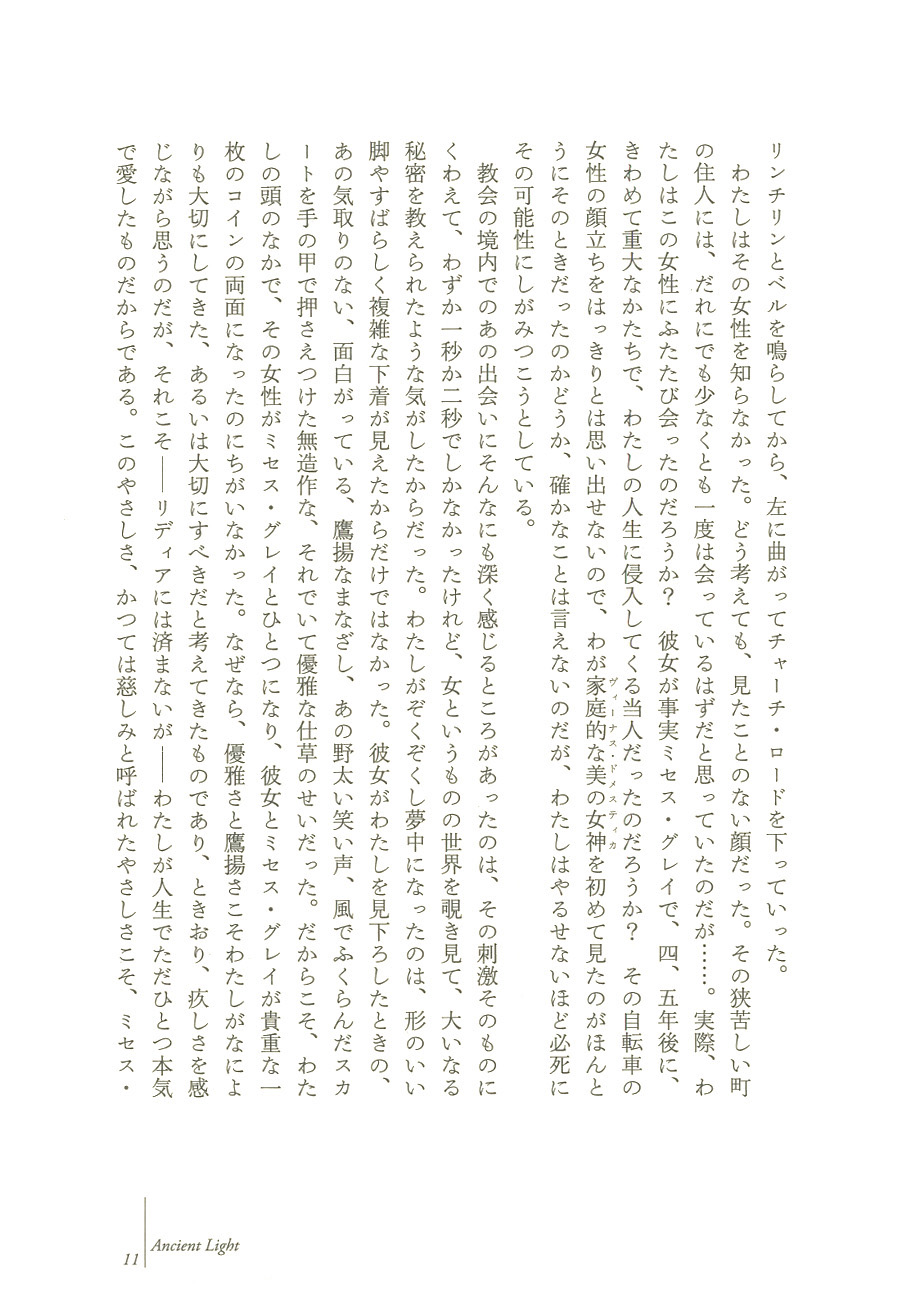 リンチリンとベルを鳴らしてから、左に曲がってチャーチ・ロードを下っていった。
わたしはその女性を知らなかった。どう考えても、見たことのない顔だった。その狭苦しい町
の住人には、だれにでも少なくとも一度は会っているはずだと思っていたのだが……。実際、わ
たしはこの女性にふたたび会ったのだろうか？　彼女が事実ミセス・グレイで、四、五年後に、
きわめて重大なかたちで、わたしの人生に侵入してくる当人だったのだろうか？　その自転車の
女性の顔立ちをはっきりとは思い出せないので、わが家庭的な美の女神を初めて見たのがほんと
ヴィーナス・ドメスティカ
うにそのときだったのかどうか、確かなことは言えないのだが、わたしはやるせないほど必死に
その可能性にしがみつこうとしている。
教会の境内でのあの出会いにそんなにも深く感じるところがあったのは、その刺激そのものに
くわえて、わずか一秒か二秒でしかなかったけれど、女というものの世界を覗き見て、大いなる
秘密を教えられたような気がしたからだった。わたしがぞくぞくし夢中になったのは、形のいい
脚やすばらしく複雑な下着が見えたからだけではなかった。彼女がわたしを見下ろしたときの、
あの気取りのない、面白がっている、鷹揚なまなざし、あの野太い笑い声、風でふくらんだスカ
ートを手の甲で押さえつけた無造作な、それでいて優雅な仕草のせいだった。だからこそ、わた
しの頭のなかで、その女性がミセス・グレイとひとつになり、彼女とミセス・グレイが貴重な一
枚のコインの両面になったのにちがいなかった。なぜなら、優雅さと鷹揚さこそわたしがなによ
りも大切にしてきた、あるいは大切にすべきだと考えてきたものであり、ときおり、疚しさを感
じながら思うのだが、それこそ――リディアには済まないが――わたしが人生でただひとつ本気
で愛したものだからである。このやさしさ、かつては慈しみと呼ばれたやさしさこそ、ミセス・
Ancient Light
11